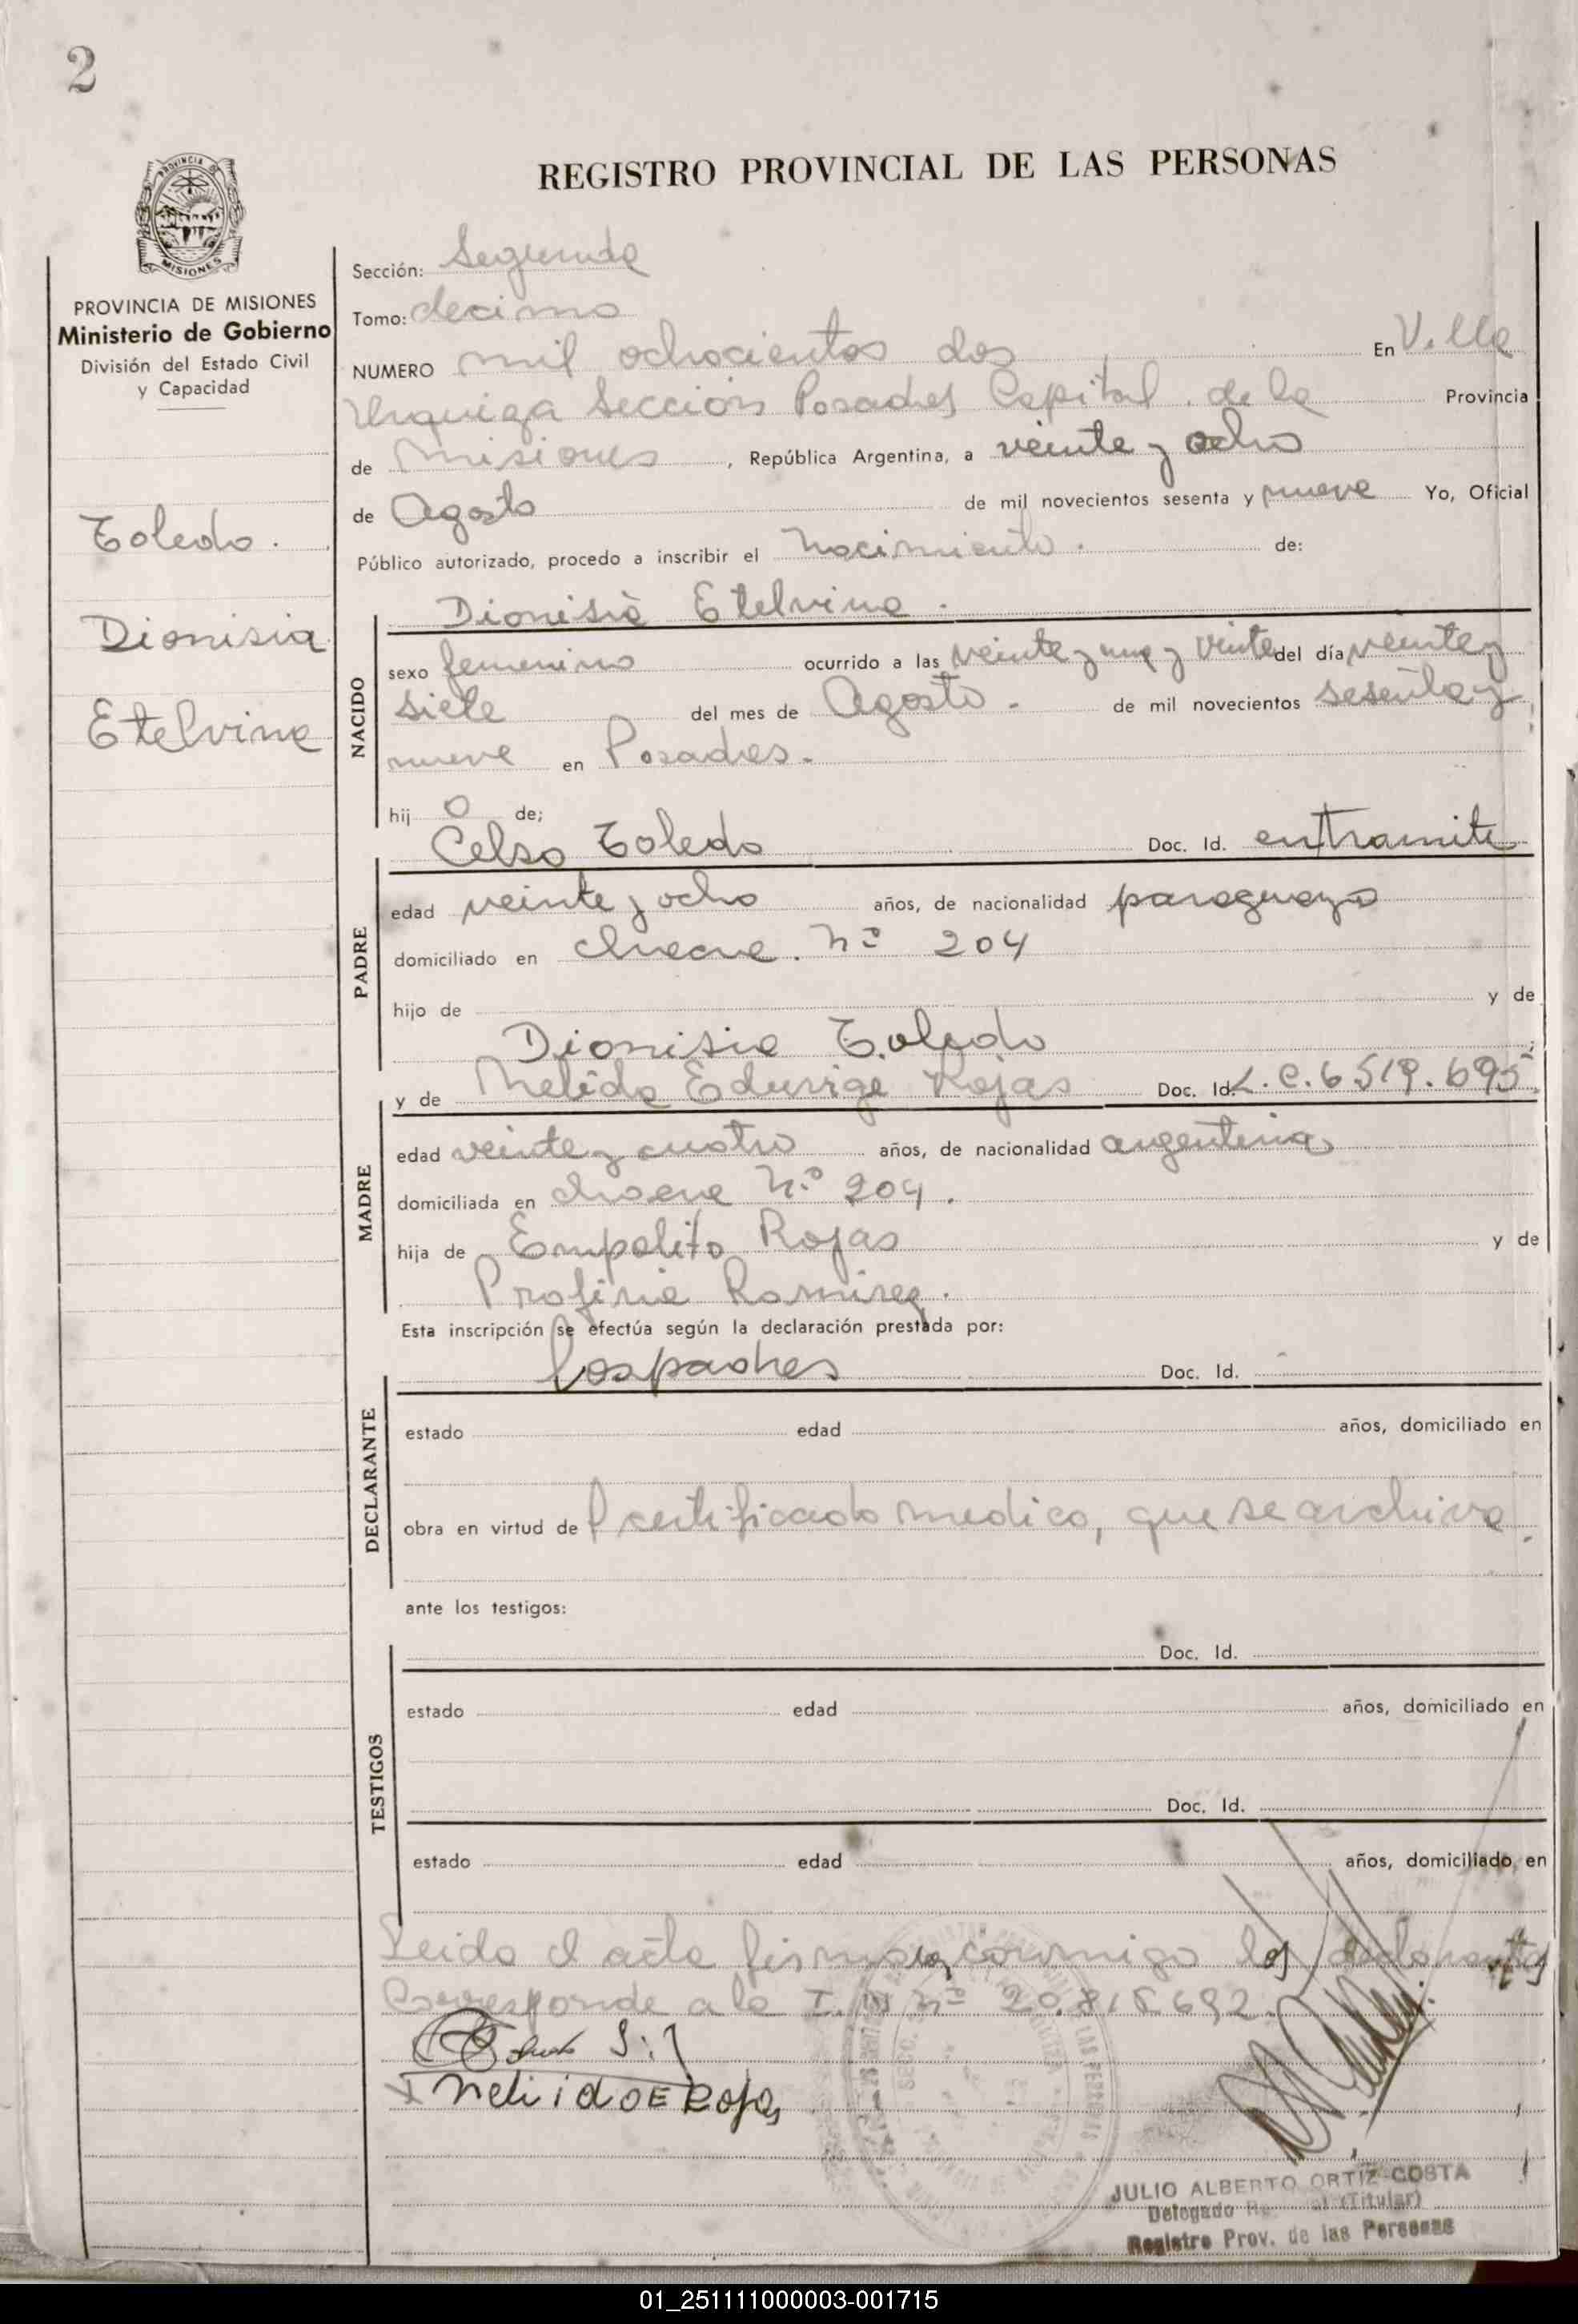 2
REGISTRO PROVINCIAL DE LAS PERSONAS
PROVINCIA
MISIONES
PROVINCIA DE MISIONES
Ministerio de Gobierno
División del Estado Civil
y Capacidad
Toledo.
Dionisia
Etelvina
Sección: Segunda
Tomo: decimo
NUMERO mil ochocientos dos En Villa
Urquiza Sección Posadas Capital de la Provincia
de Misiones, República Argentina, a veinte y ocho
de Agosto de mil novecientos sesenta y nueve Yo, Oficial
Público autorizado, procedo a inscribir el nacimiento. de:
Dionisia Etelvina.
NACIDO
sexo femenino ocurrido a las veinte y una y veinte del día veinte y
siete del mes de Agosto. de mil novecientos sesenta y
nueve en Posadas.
hij o de;
Celso Toledo Doc. Id. en tramite
PADRE
edad veinte y ocho años, de nacionalidad paraguaya
domiciliado en chacra. Nº 204
hijo de y de
Dionisia Toledo
y de Nelida Eduvige Rojas Doc. Id. L.C. 6519.695
MADRE
edad veinte y cuatro años, de nacionalidad argentina
domiciliada en chacra Nº 204.
hija de Empolito Rojas y de
Ramirez.
Esta inscripción se efectúa según la declaración prestada por:
los padres Doc. Id.
DECLARANTE
estado edad años, domiciliado en
obra en virtud de certificado medico, que se archiva.
ante los testigos:
Doc. Id.
TESTIGOS
estado edad años, domiciliado en
Doc. Id.
estado edad años, domiciliado en
Leida el acta firman conmigo los declarantes
Corresponde a la Nº 20.818692.
Nelida E Rojas
JULIO ALBERTO ORTIZ COSTA
Delegado (Titular)
Registro Prov. de las Personas
01_251111000003-001715